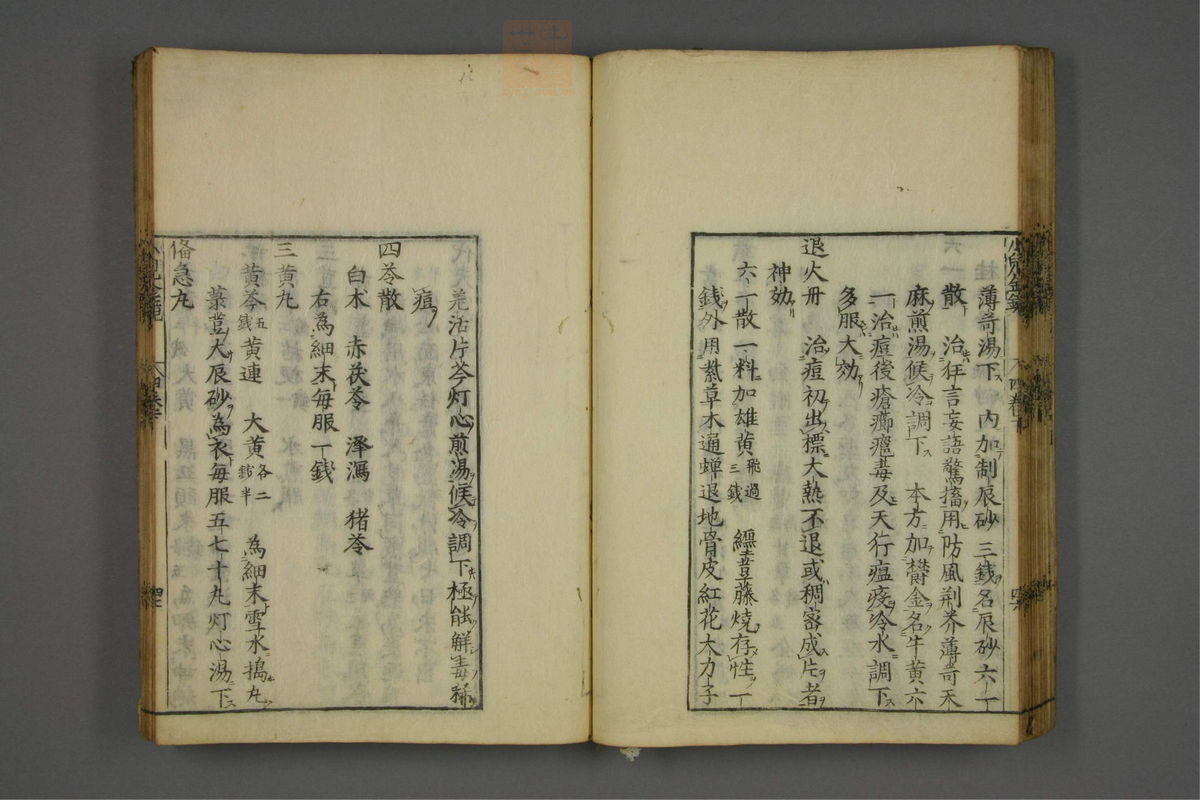 薄苛湯下 内加制辰砂三錢名辰砂六一
散 治狂言妄語驚搐用防風荆芥薄苛天
麻煎湯候冷調下 本方加欝金名牛黄六
一治痘後瘡癤癰毒及天行瘟疫冷水調下
多服大効
退火丹 治痘初出標大熱不退或稠密成片者
神効
六一散一料加雄黄飛過三錢 纏豆藤燒存性一
錢外用紫草木通蝉退地骨皮紅花大力子
羗活片芩灯心煎湯候冷調下極能解毒稀
痘
四苓散
白术 赤茯苓 澤瀉 猪苓
右為細末每服一錢
三黄丸
黄芩五錢黄連 大黄各二錢半 為細末雪水搗丸
菉豆大辰砂為衣每服五七十丸灯心湯下
俻急丸